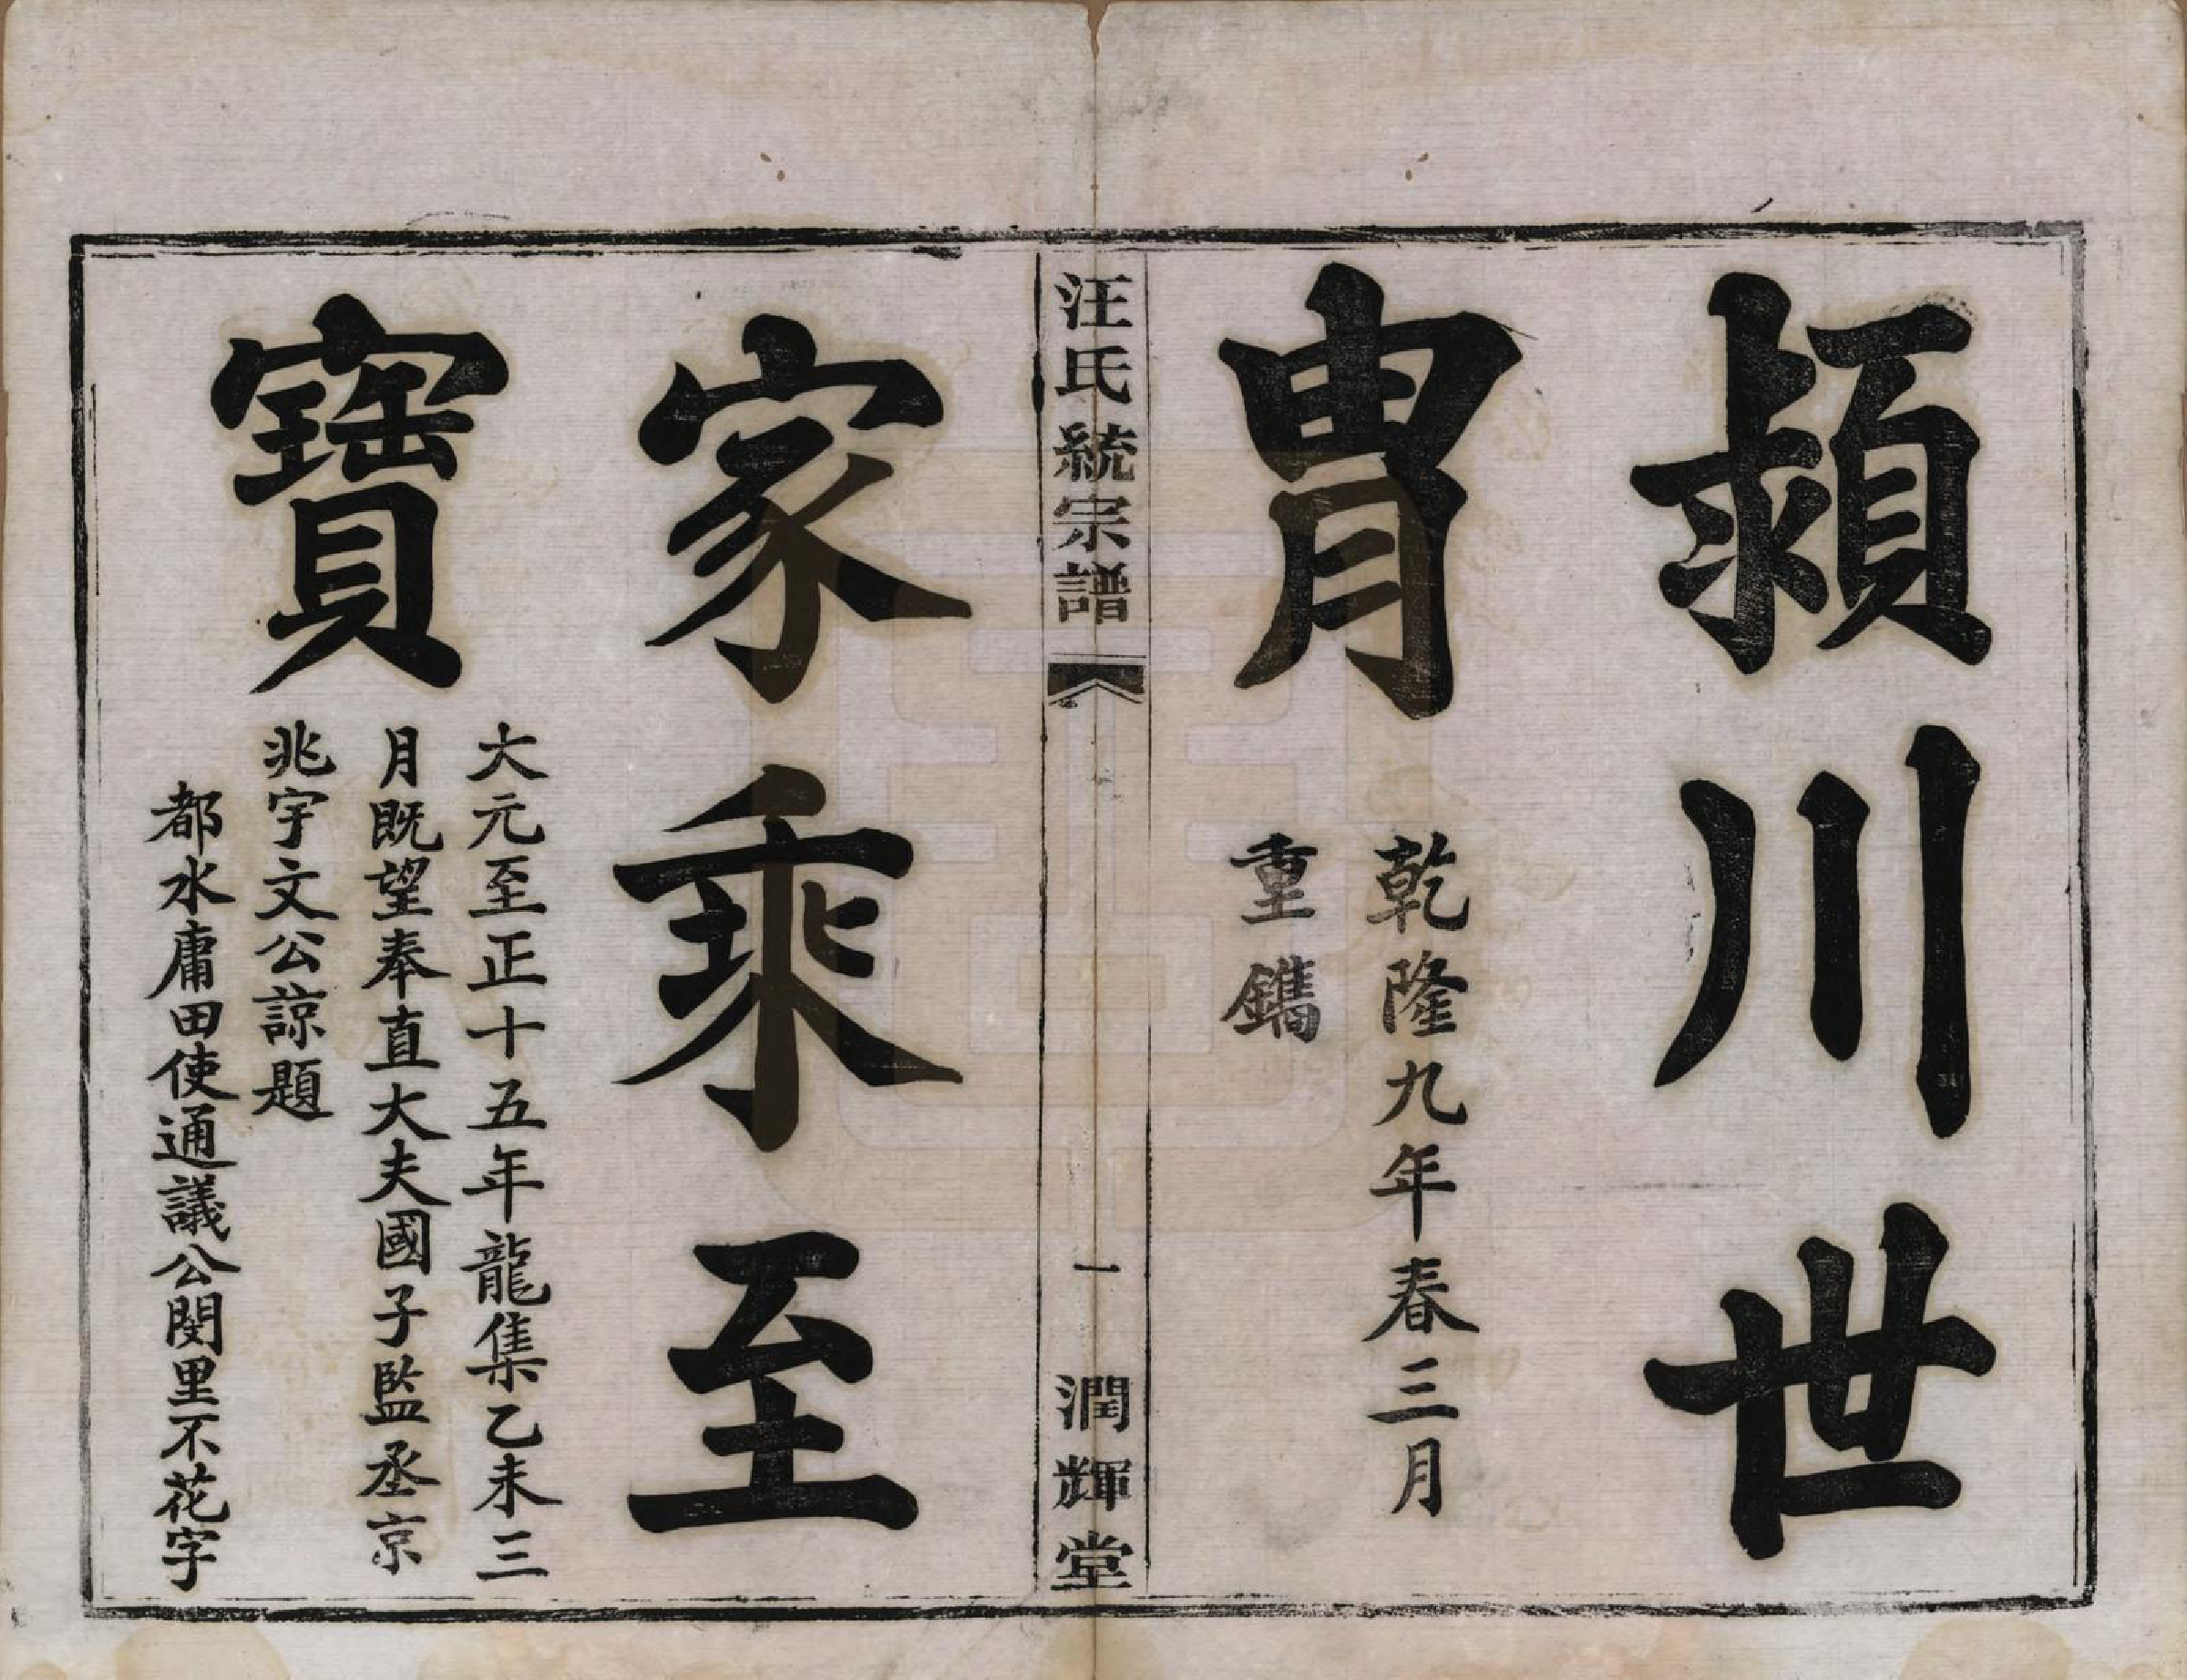 潁川世
胄
乾隆九年春三月
重鐫
汪氏統宗譜
一
潤輝堂
家乘至
寶
大元至正十五年龍集乙未三
月既望奉直大夫國子監丞京
兆宇文公諒題
都水庸田使通議公閔里不花字